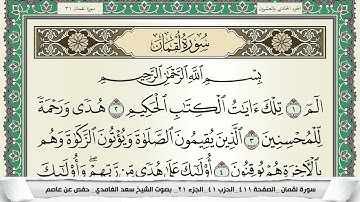 الجزء الحادي والعشرون
سورة لقمان ٣١
سُورَةُ لُقْمَانَ
بِسْمِ اللَّهِ الرَّحْمَٰنِ الرَّحِيمِ
الٓمٓ ١ تِلْكَ ءَايَٰتُ ٱلْكِتَٰبِ ٱلْحَكِيمِ ٢ هُدًى وَرَحْمَةً
لِّلْمُحْسِنِينَ ٣ ٱلَّذِينَ يُقِيمُونَ ٱلصَّلَوٰةَ وَيُؤْتُونَ ٱلزَّكَوٰةَ وَهُم
بِٱلْءَاخِرَةِ هُمْ يُوقِنُونَ ٤ أُو۟لَٰٓئِكَ عَلَىٰ هُدًى مِّن رَّبِّهِمْ ۖ وَأُو۟لَٰٓئِكَ
سورة لقمان _ الصفحة ٤١١ _الحزب ٤١ _الجزء ٢١ _ بصوت الشيخ سعد الغامدي _ حفص عن عاصم